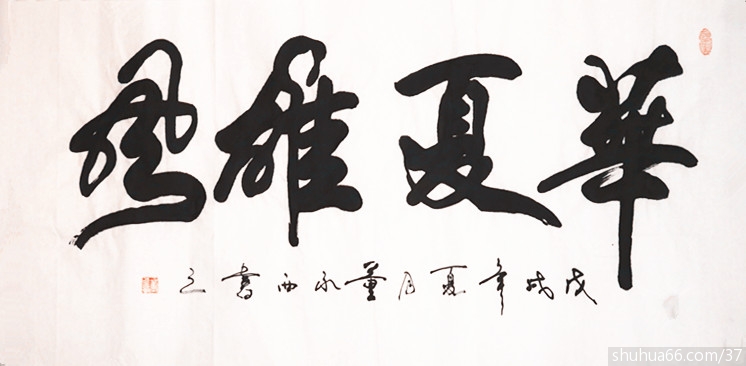 華夏雄風
戊戌年夏月董永西書之
shuhua66.com/37